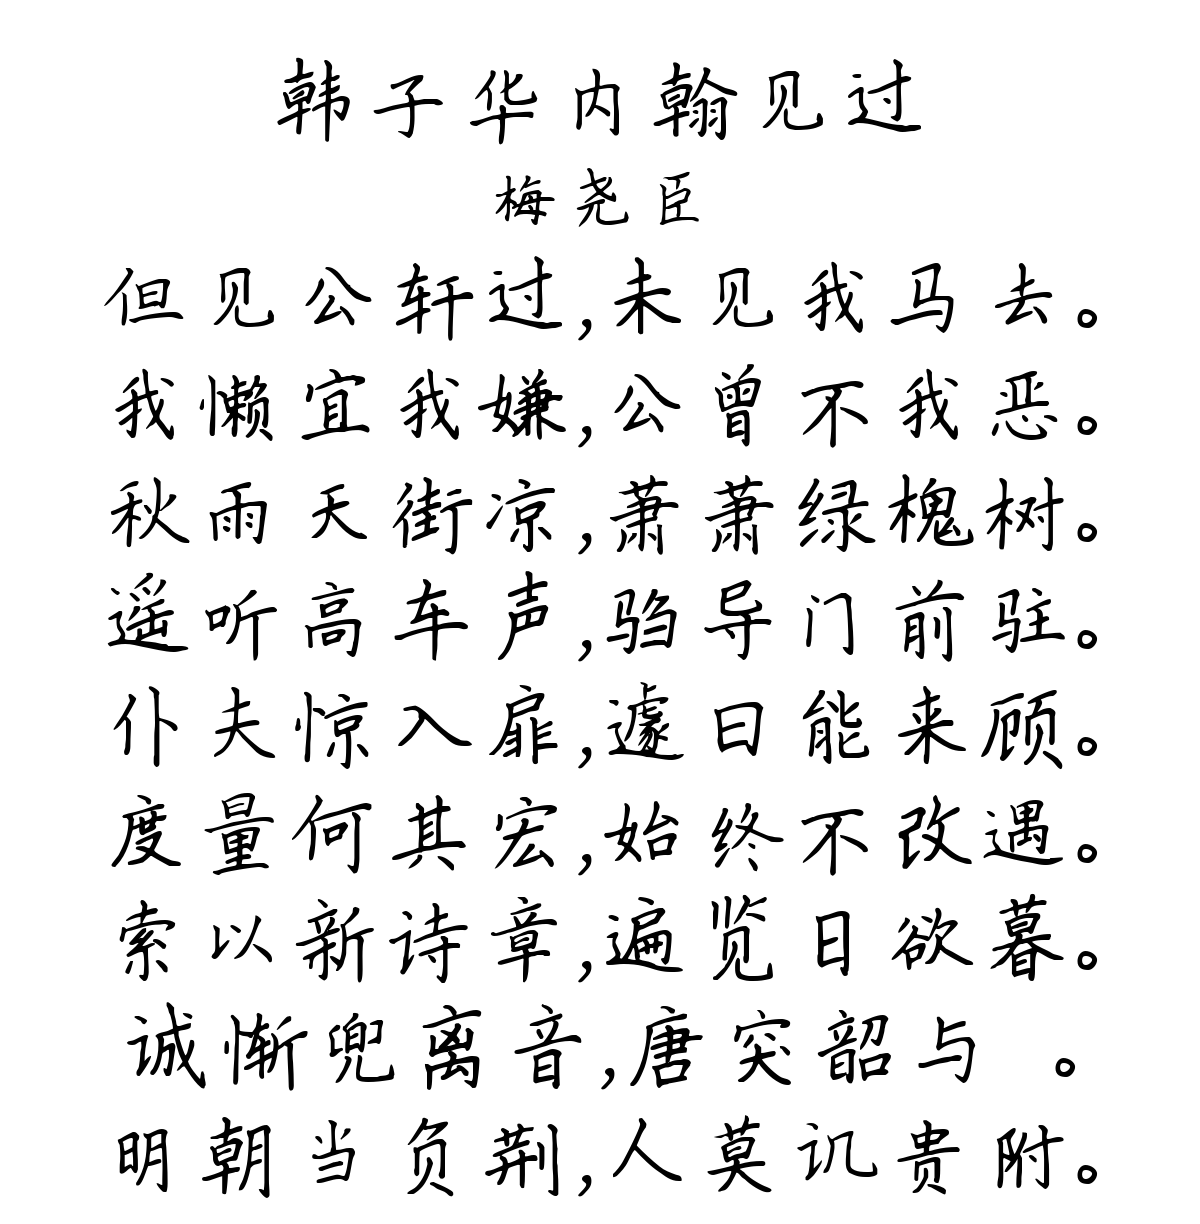 韩子华内翰见过
梅尧臣
但见公轩过,未见我马去。
我懒宜我嫌,公曾不我恶。
秋雨天街凉,萧萧绿槐树。
遥听高车声,驺导门前驻。
仆夫惊入扉,遽曰能来顾。
度量何其宏,始终不改遇。
索以新诗章,遍览日欲暮。
诚惭兜离音,唐突韶与 。
明朝当负荆,人莫讥贵附。